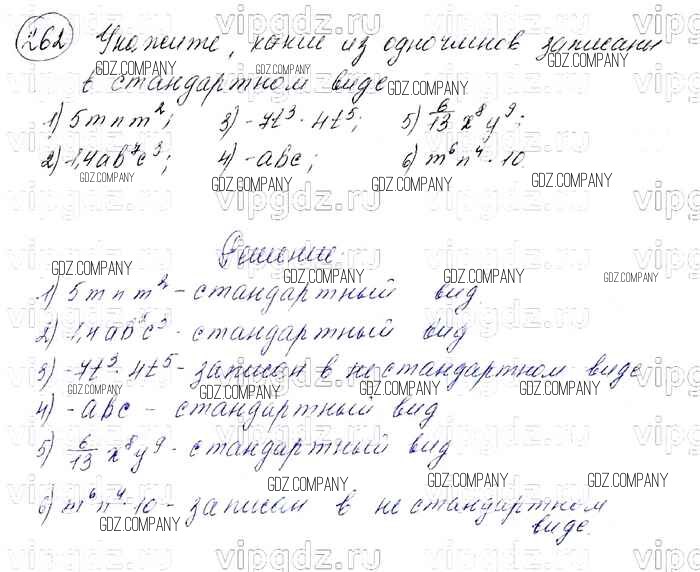 262 Укажите, какие из одночленов записаны
в стандартном виде
1) 5mnm²; 3) -7t³·4t⁵; 5) 6/13 x⁸y⁹;
2) 1,4ab⁷c³; 4) -abc; 6) m⁶n⁴·10
Решение:
1) 5mnm² - стандартный вид
2) 1,4ab⁷c³ - стандартный вид
3) -7t³·4t⁵ - записан в не стандартном виде
4) -abc - стандартный вид
5) 6/13 x⁸y⁹ - стандартный вид
6) m⁶n⁴·10 - записан в не стандартном
виде.
GDZ.COMPANY
vipgdz.ru